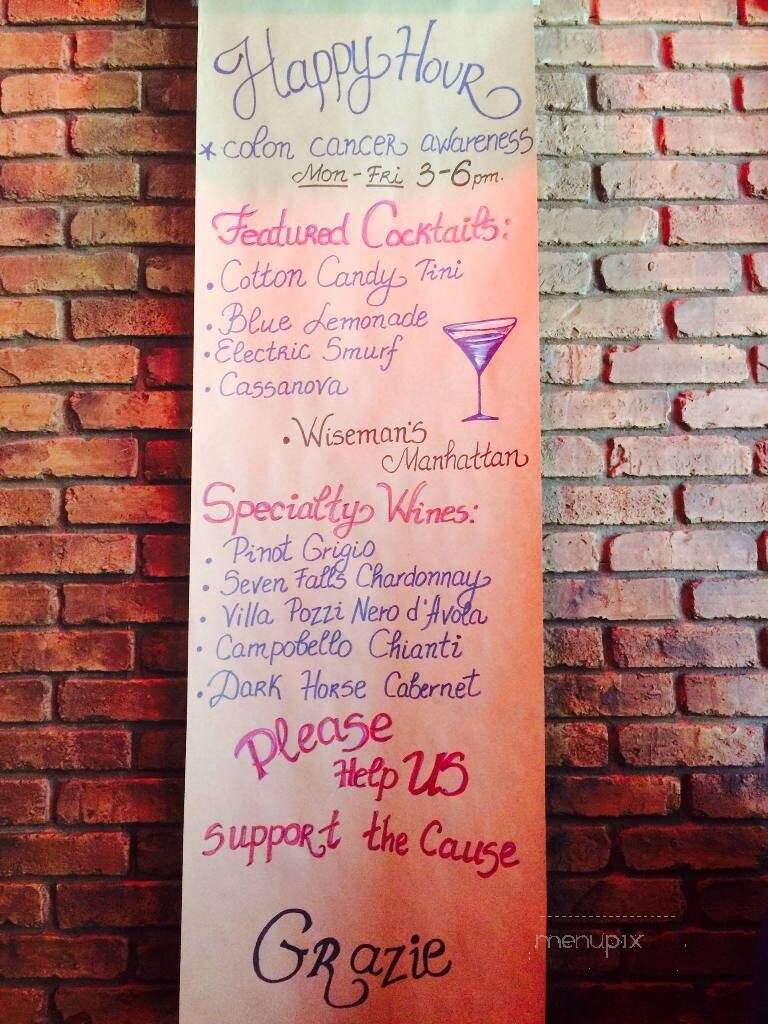 Happy Hour
* Colon Cancer Awareness
Mon - Fri 3-6pm.
Featured Cocktails:
• Cotton Candy Tini
• Blue Lemonade
• Electric Smurf
• Cassanova
• Wiseman's
Manhattan
Specialty Wines:
• Pinot Grigio
• Seven Falls Chardonnay
• Villa Pozzi Nero d'Avola
• Campobello Chianti
• Dark Horse Cabernet
Please
Help US
Support the Cause
Grazie
menupix